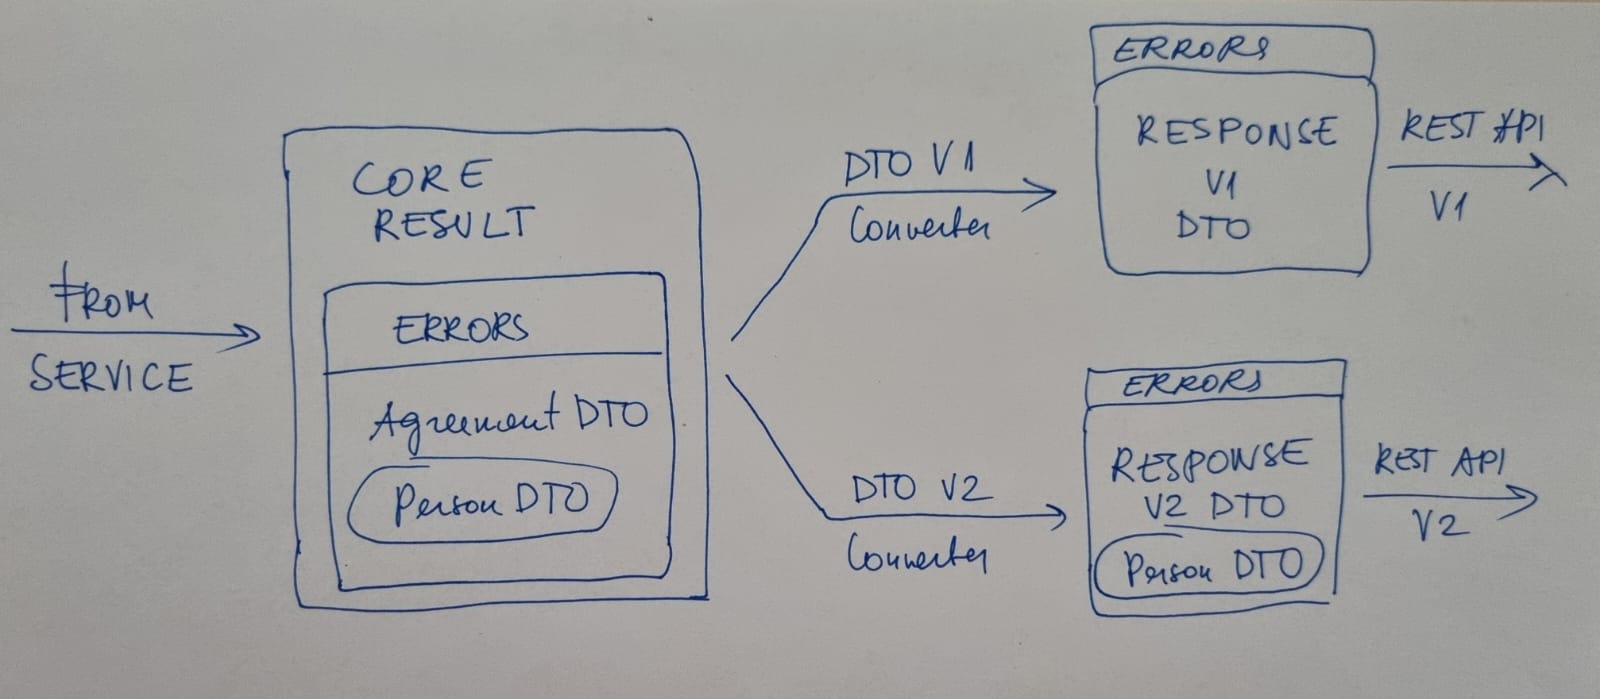 FROM
SERVICE
CORE
RESULT
ERRORS
Agreement DTO
Person DTO
DTO V1
Converter
ERRORS
RESPONSE
V1
DTO
REST API
V1
DTO V2
Converter
ERRORS
RESPONSE
V2 DTO
Person DTO
REST API
V2